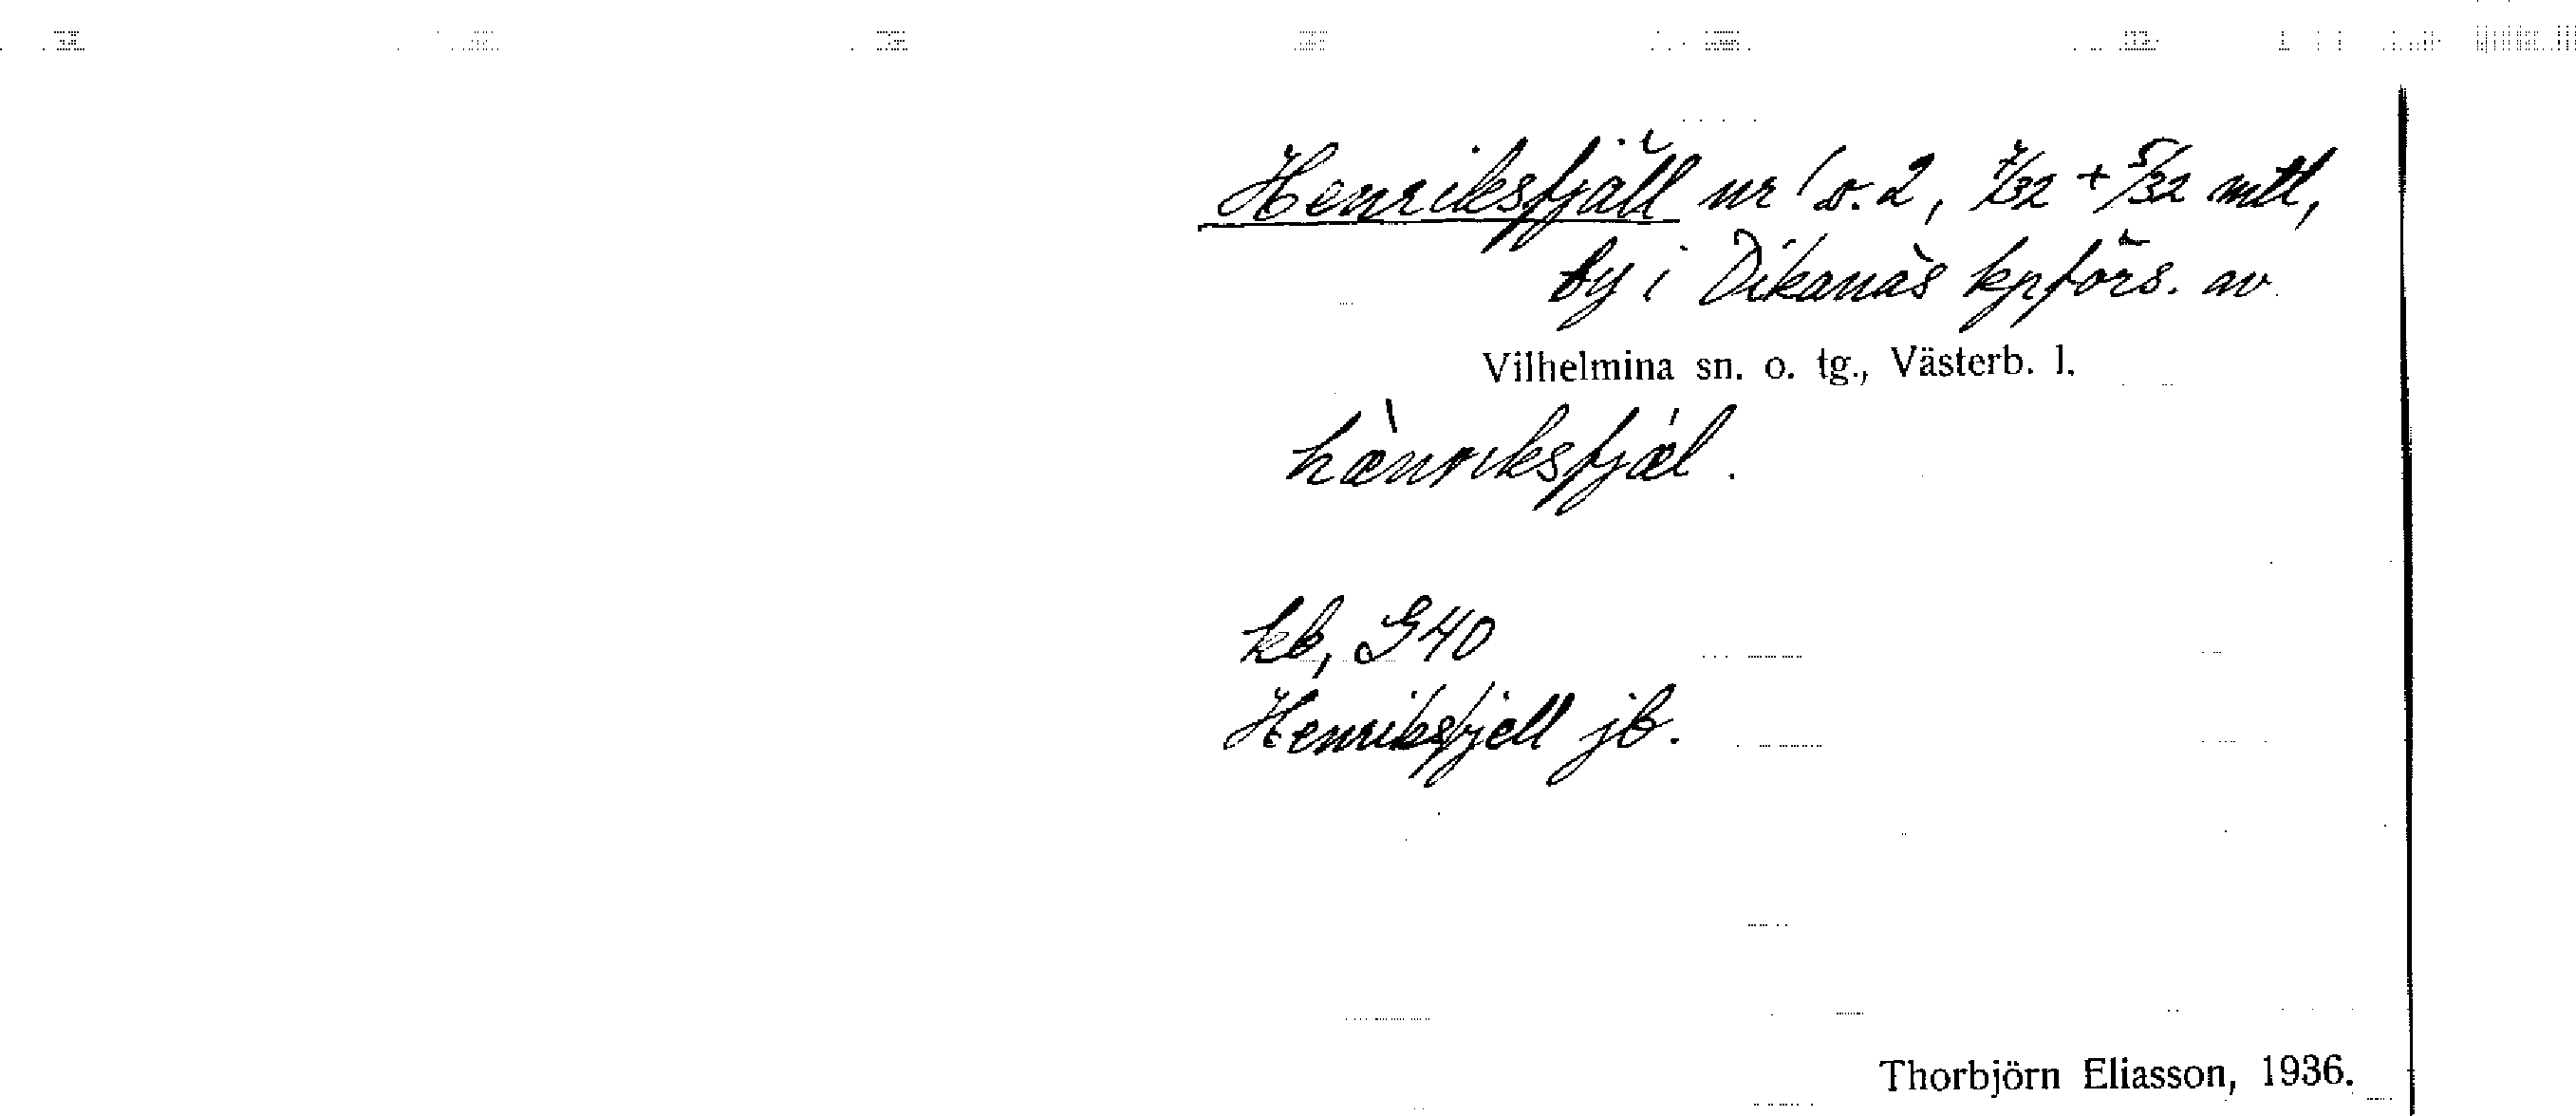 Henriksfjäll nr 1 o. 2, 7/32 + 5/32 mtl,
by i Dikanäs kpförs. av
Vilhelmina sn. o. tg., Västerb. l.
hæ̀nriksfjæ̀l.
kb, G40
Henriksfjell jb.
Thorbjörn Eliasson, 1936.